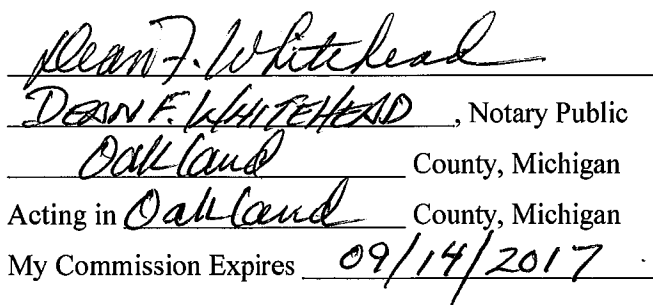 Dean F. Whitehead
DEAN F. WHITEHEAD, Notary Public
Oakland County, Michigan
Acting in Oakland County, Michigan
My Commission Expires 09/14/2017